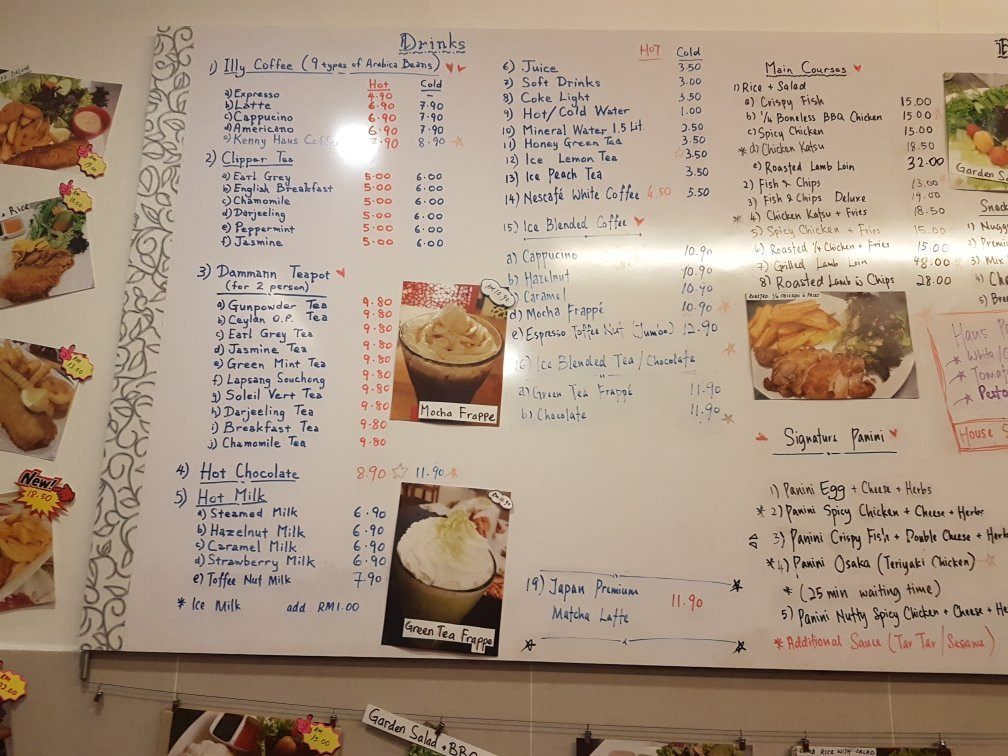 Drinks
1) Illy Coffee (9 types of Arabica Beans)
Hot Cold
a) Expresso 4.90 -
b) Latte 6.90 7.90
c) Cappucino 6.90 7.90
d) Americano 6.90 7.90
e) Kenny Haus Coffee 7.90 8.90
2) Clipper Tea
a) Earl Grey 5.00 6.00
b) English Breakfast 5.00 6.00
c) Chamomile 5.00 6.00
d) Darjeeling 5.00 6.00
e) Peppermint 5.00 6.00
f) Jasmine 5.00 6.00
3) Dammann Teapot
(for 2 person)
a) Gunpowder Tea 9.80
b) Ceylan O.P. Tea 9.80
c) Earl Grey Tea 9.80
d) Jasmine Tea 9.80
e) Green Mint Tea 9.80
f) Lapsang Souchong 9.80
g) Soleil Vert Tea 9.80
h) Darjeeling Tea 9.80
i) Breakfast Tea 9.80
j) Chamomile Tea 9.80
4) Hot Chocolate 8.90 11.90
5) Hot Milk
a) Steamed Milk 6.90
b) Hazelnut Milk 6.90
c) Caramel Milk 6.90
d) Strawberry Milk 6.90
e) Toffee Nut Milk 7.90
* Ice Milk add RM1.00
RM 10.90
Mocha Frappe
RM 11.90
Green Tea Frappe
HOT Cold
6) Juice 3.50
7) Soft Drinks 3.00
8) Coke Light 3.50
9) Hot/Cold Water 1.00
10) Mineral Water 1.5 Lit. 2.50
11) Honey Green Tea 3.50
12) Ice Lemon Tea 3.50
13) Ice Peach Tea 3.50
14) Nescafé White Coffee 4.50 5.50
15) Ice Blended Coffee
a) Cappucino 10.90
b) Hazelnut 10.90
c) Caramel 10.90
d) Mocha Frappé 10.90
e) Espresso Toffee Nut (Jumbo) 12.90
16) Ice Blended Tea/Chocolate
a) Green Tea Frappé 11.90
b) Chocolate 11.90
19) Japan Premium
Matcha Latte 11.90
Main Courses
1) Rice + Salad
a) Crispy Fish 15.00
b) 1/4 Boneless BBQ Chicken 15.00
c) Spicy Chicken 15.00
* d) Chicken Katsu 18.50
e) Roasted Lamb Loin 32.00
2) Fish & Chips 13.00
3) Fish & Chips Deluxe 19.00
* 4) Chicken Katsu + Fries 18.50
5) Spicy Chicken + Fries 15.00
6) Roasted 1/4 Chicken + Fries 15.00
7) Grilled Lamb Loin 48.00
8) Roasted Lamb & Chips 28.00
ROASTED 1/4 CHICKEN & FRIES
Signature Panini
1) Panini Egg + Cheese + Herbs
* 2) Panini Spicy Chicken + Cheese + Herbs
3) Panini Crispy Fish + Double Cheese + Herb
* 4) Panini Osaka (Teriyaki Chicken)
* (25 min waiting time)
5) Panini Nutty Spicy Chicken + Cheese + He
* Additional Sauce (Tar Tar/Sesame)
Garden Sa
Snack
1) Nugg
2) Premi
3) Mix
4) Che
5) Bre
Haus P
* White/C
* Tomat
* Pesto
House S
+ Rice
New!
18.50
Garden Salad + BBQ
RM 13.00
LAMB RICE WITH SALAD